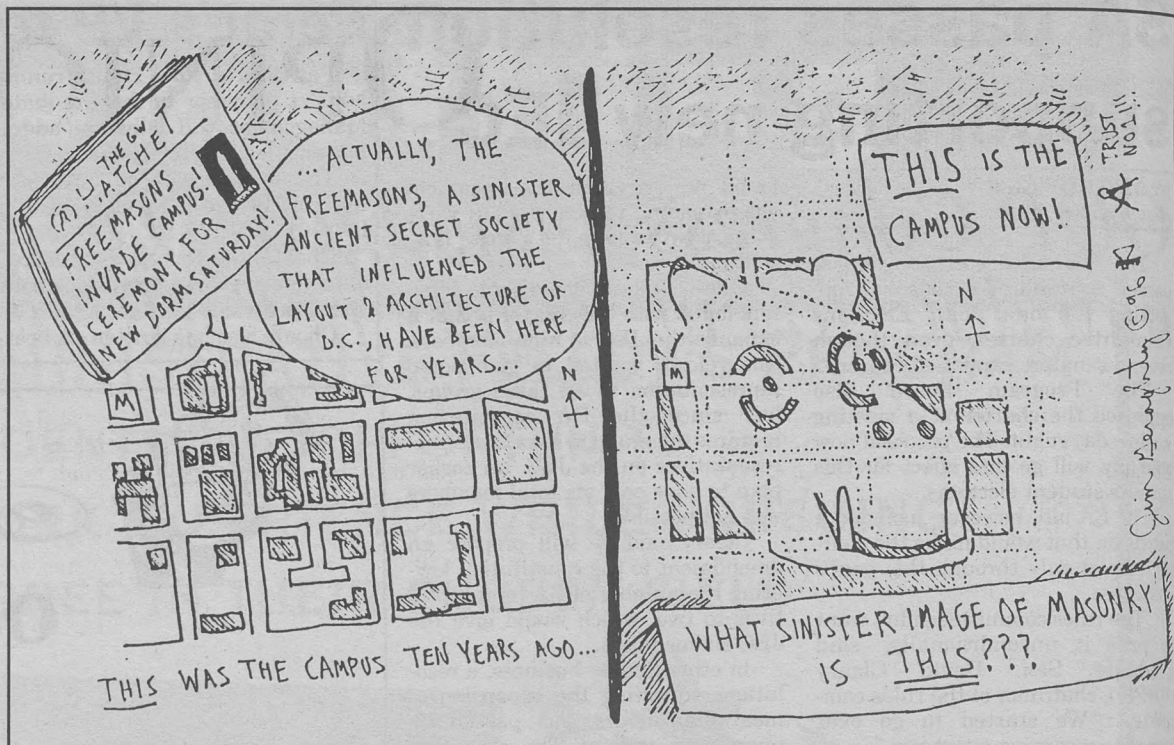 THE GW
HATCHET
FREEMASONS
INVADE CAMPUS!
CEREMONY FOR
NEW DORM SATURDAY!
... ACTUALLY, THE
FREEMASONS, A SINISTER
ANCIENT SECRET SOCIETY
THAT INFLUENCED THE
LAYOUT & ARCHITECTURE OF
D.C., HAVE BEEN HERE
FOR YEARS...
N
M
THIS WAS THE CAMPUS TEN YEARS AGO...
THIS IS THE
CAMPUS NOW!
N
M
WHAT SINISTER IMAGE OF MASONRY
IS THIS???
TRUST
NO.1!!!
©96